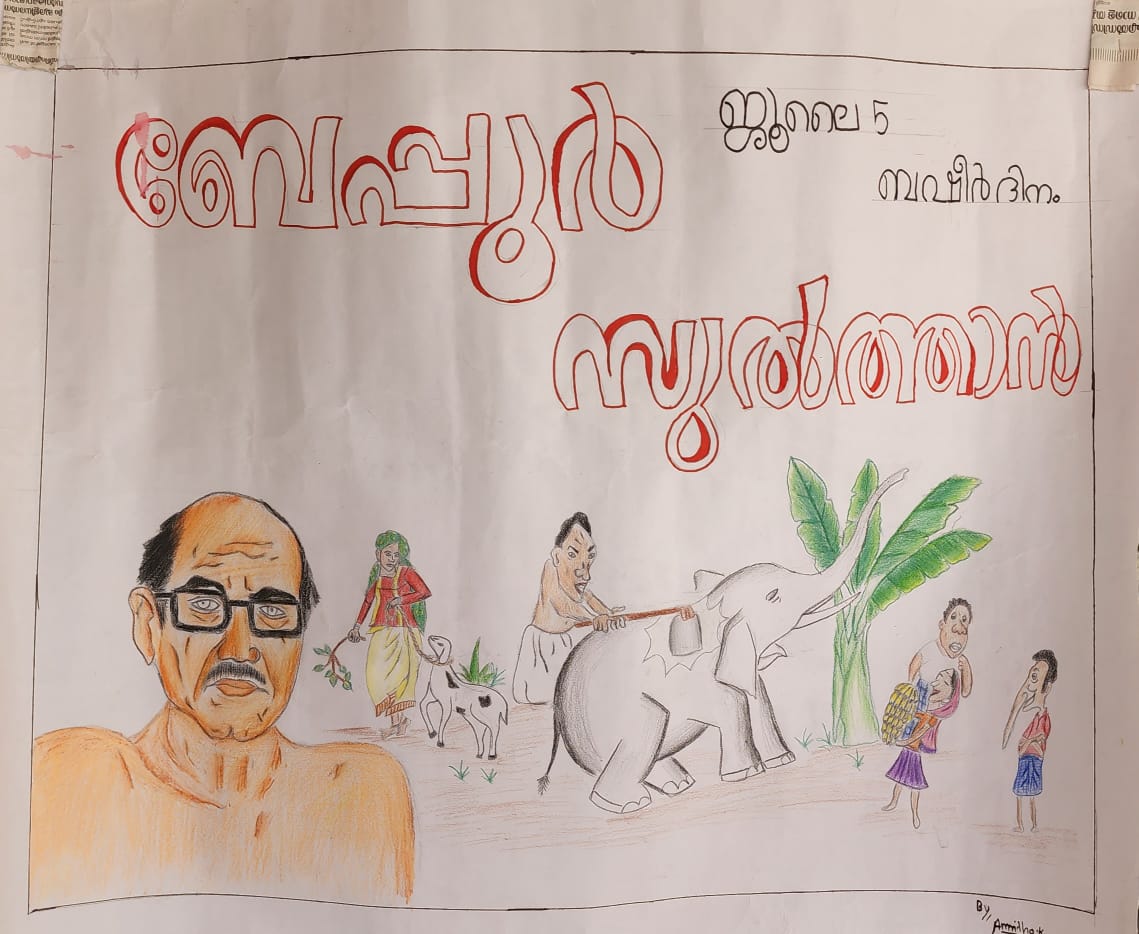 ബേപ്പൂർ
ജൂലൈ 5
ബഷീർ ദിനം
സുൽത്താൻ
By,